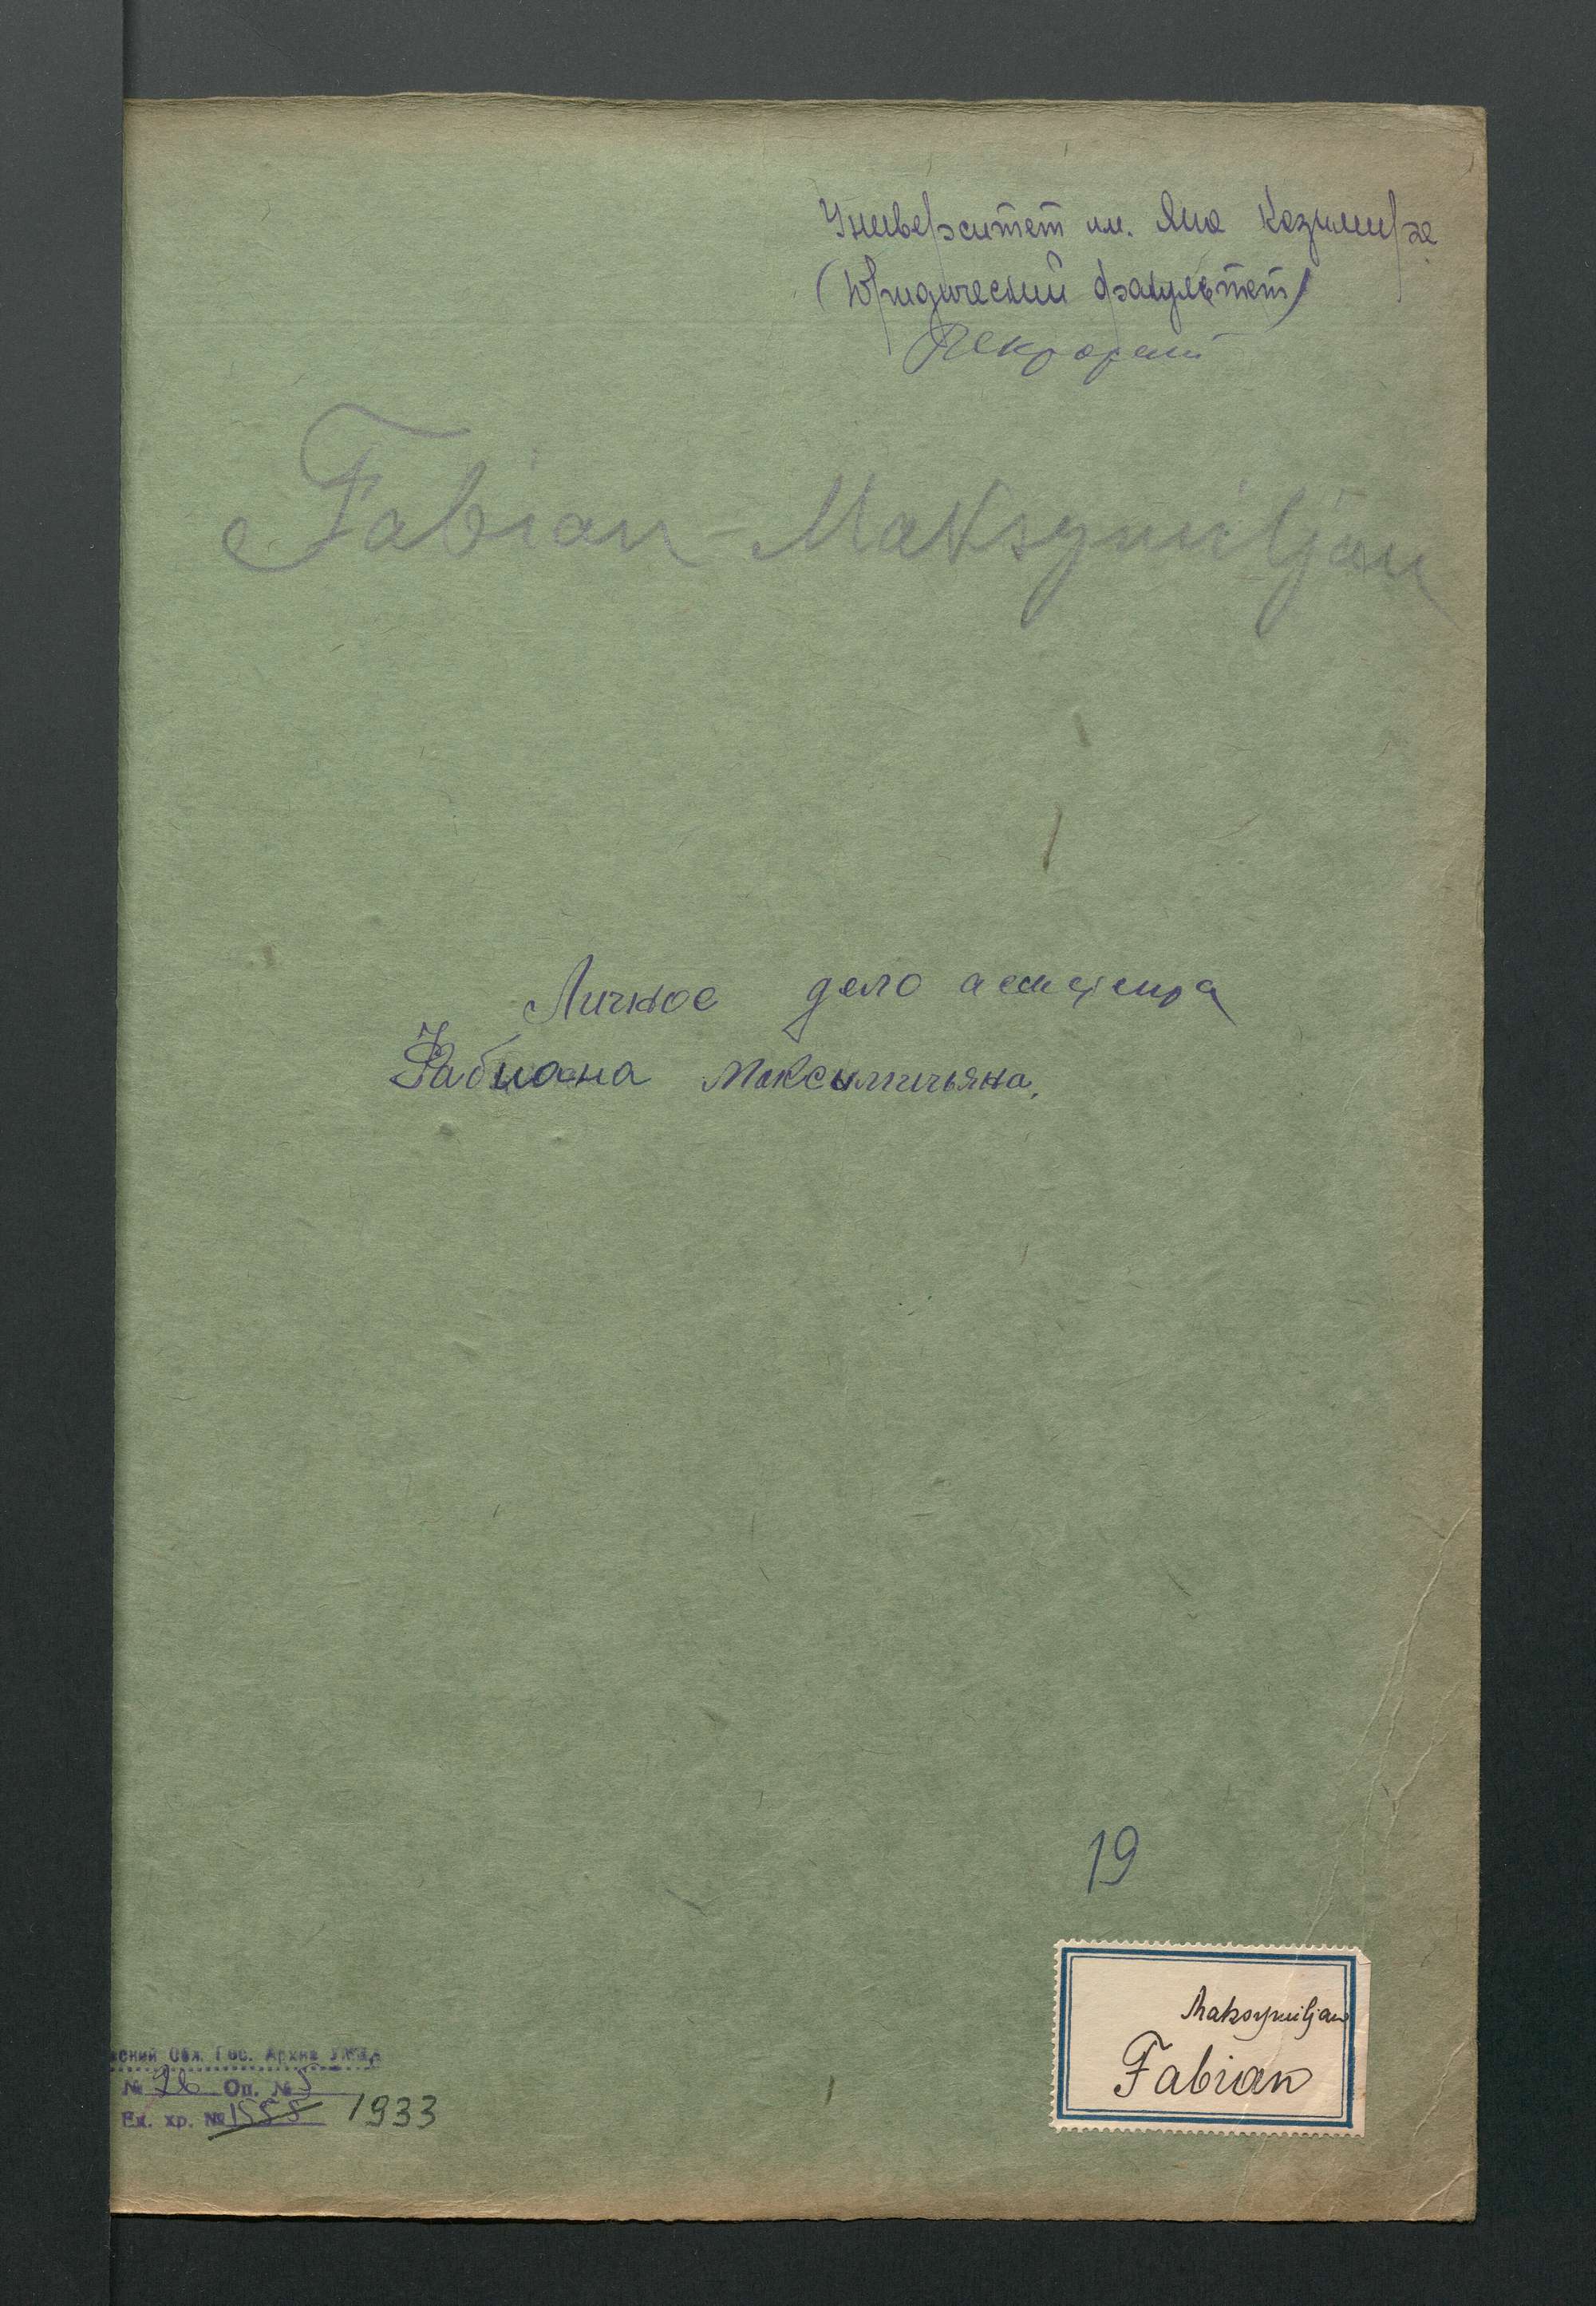 Университет им. Яна Казимира
(Юридический факультет)
Ректорат
Fabian Maksymiljan
Личное дело ассистента
Фабиана Максимильяна.
19
Maksymiljan
Fabian
ский Обл. Гос. Архив
№ 26 Оп. № 5
Ед. хр. № 1555 1933